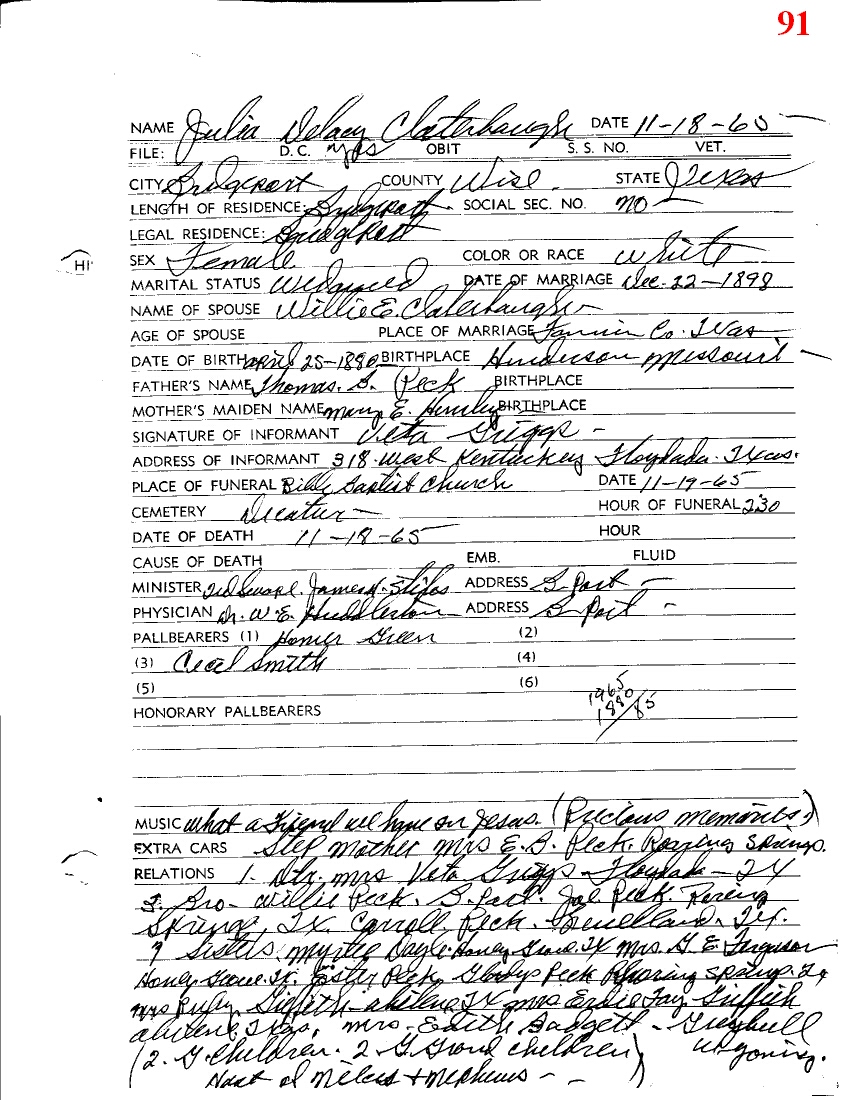 91
NAME Julia Delacy Claterbaugh DATE 11-18-65
FILE: D.C. yes OBIT S. S. NO. VET.
CITY Bridgeport COUNTY Wise STATE Texas
LENGTH OF RESIDENCE: Bridgeport SOCIAL SEC. NO. no
LEGAL RESIDENCE: Bridgeport
HI
SEX Female COLOR OR RACE White
MARITAL STATUS Widowed DATE OF MARRIAGE Dec. 22-1898
NAME OF SPOUSE Willie E. Claterbaugh
AGE OF SPOUSE PLACE OF MARRIAGE Fannin Co. Texas
DATE OF BIRTH April 25-1880 BIRTHPLACE Henderson Missouri
FATHER'S NAME Thomas. G. Peck BIRTHPLACE
MOTHER'S MAIDEN NAME Mary E. BIRTHPLACE
SIGNATURE OF INFORMANT Veta Griggs -
ADDRESS OF INFORMANT 318 West Kentucky Floydada Texas.
PLACE OF FUNERAL Bible Baptist Church DATE 11-19-65
CEMETERY Decatur HOUR OF FUNERAL 2:30
DATE OF DEATH 11-18-65 HOUR
CAUSE OF DEATH EMB. FLUID
MINISTER James H. ADDRESS B. Port -
PHYSICIAN Dr. W. E. Huddleston ADDRESS B. Port -
PALLBEARERS (1) Homer Green (2)
(3) Cecil Smith (4)
(5) (6)
1965
1880
85
HONORARY PALLBEARERS
MUSIC What a Friend we have in Jesus. (Precious memories.)
EXTRA CARS Step Mother Mrs E. B. Peck. Roaring Springs.
RELATIONS 1. Dtr. Mrs Veta Griggs - Floydada - TX
3. Bro - Willie Peck. B. Port. Joe Peck. Roaring
Springs, TX. Carroll Peck. TX.
7 Sisters Myrtle Honey Grove. TX Mrs. G. E. Ferguson
Honey Grove. TX. Ester Peck Gladys Peck Roaring Springs. TX
Mrs Ruby Griffith - Abilene TX Mrs Erdie Fay Griffith
Abilene Texas, Mrs. Edith Badgett - Greybull
(2. G. Children. 2 G. Grand Children) Wyoming.
Host of Nieces + Nephews - -